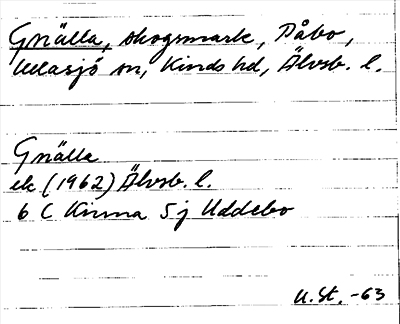 Gnälla, skogsmark, Påbo,
Ullasjö sn, Kinds hd, Älvsb. l.
Gnälla
ek (1962) Älvsb. l.
6 C Kinna 5 j Uddebo
U. St. -63